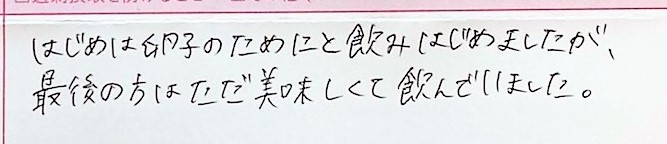 はじめは卵子のためにと飲みはじめましたが、
最後の方はただ美味しくて飲んでいました。